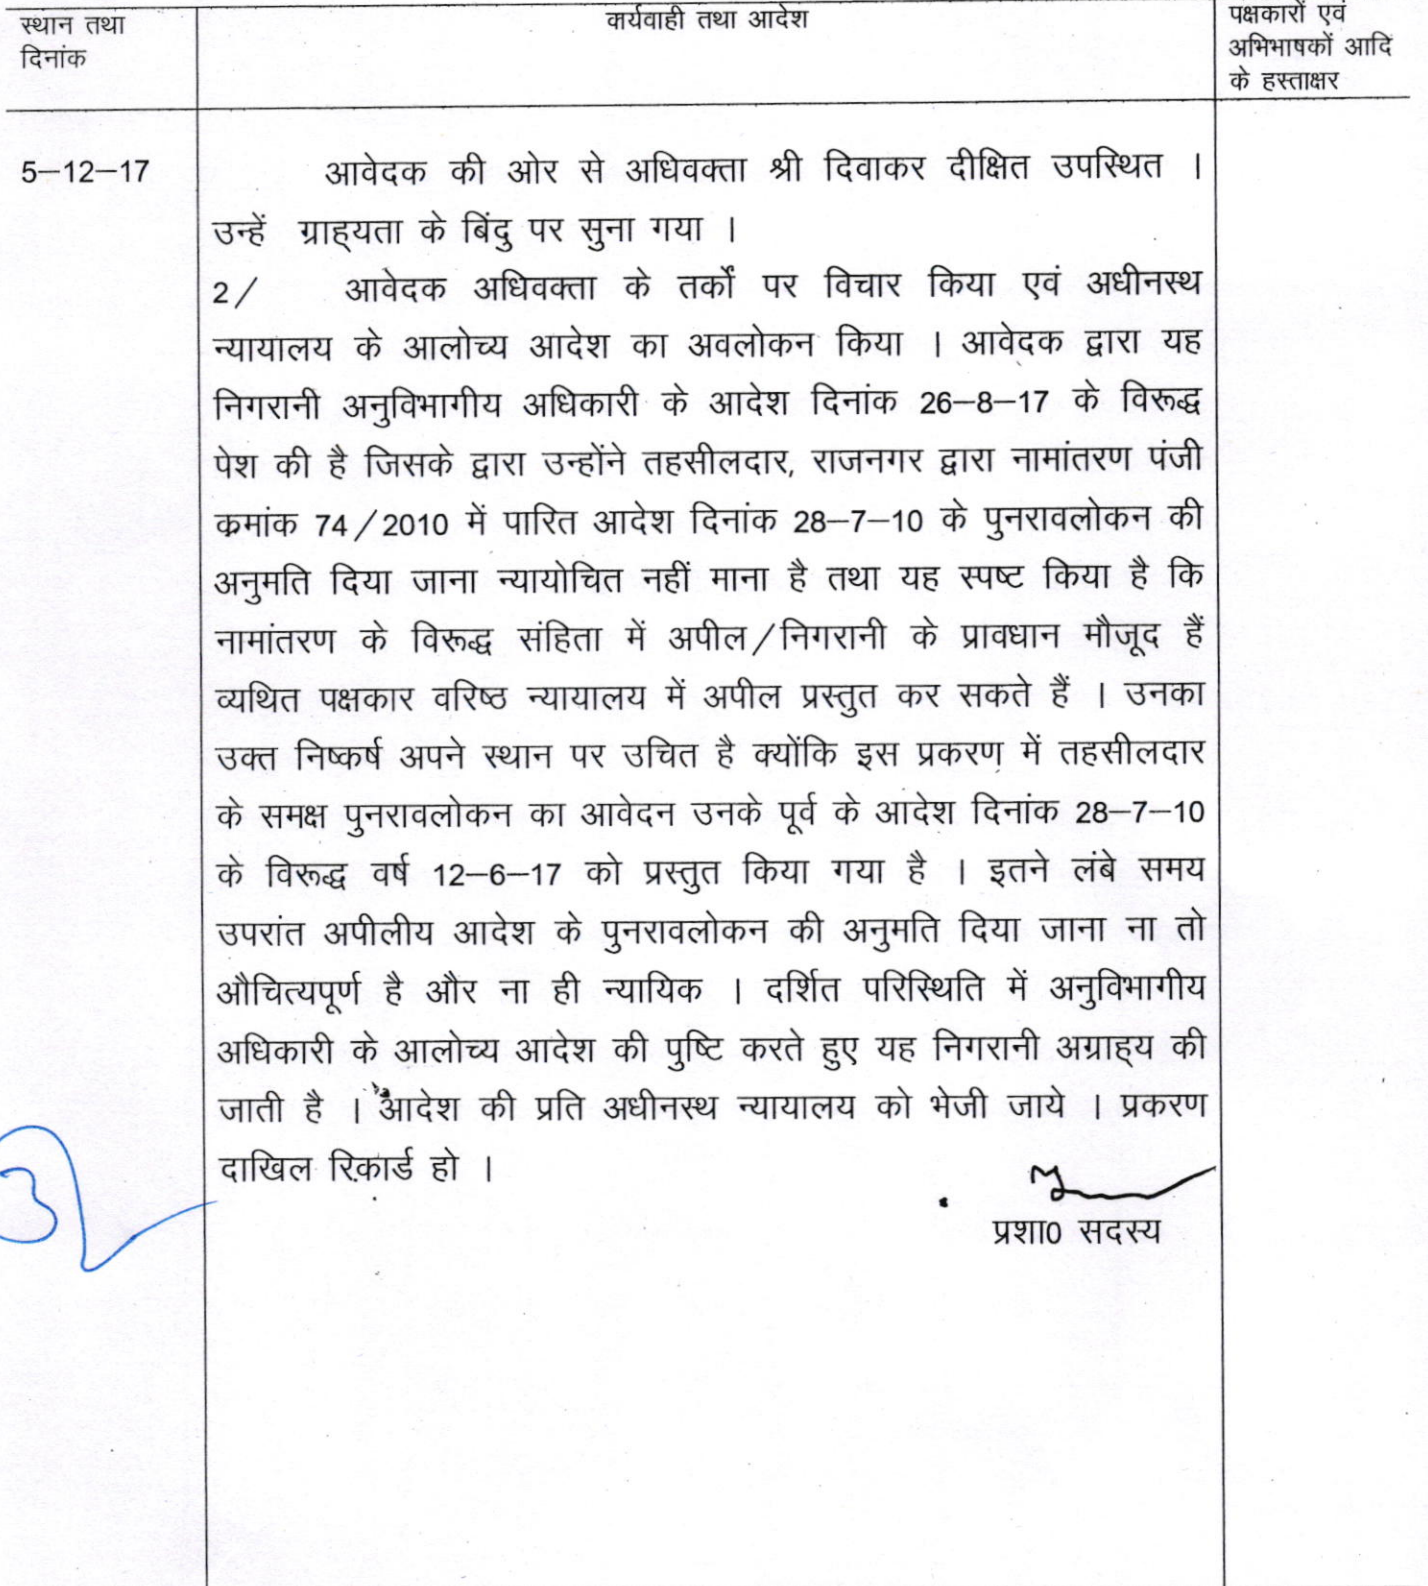 स्थान तथा
दिनांक
कार्यवाही तथा आदेश
पक्षकारों एवं
अभिभाषकों आदि
के हस्ताक्षर
5–12–17
आवेदक की ओर से अधिवक्ता श्री दिवाकर दीक्षित उपस्थित ।
उन्हें ग्राह्यता के बिंदु पर सुना गया ।
2/ आवेदक अधिवक्ता के तर्कों पर विचार किया एवं अधीनस्थ
न्यायालय के आलोच्य आदेश का अवलोकन किया । आवेदक द्वारा यह
निगरानी अनुविभागीय अधिकारी के आदेश दिनांक 26–8–17 के विरूद्ध
पेश की है जिसके द्वारा उन्होंने तहसीलदार, राजनगर द्वारा नामांतरण पंजी
क्रमांक 74/2010 में पारित आदेश दिनांक 28–7–10 के पुनरावलोकन की
अनुमति दिया जाना न्यायोचित नहीं माना है तथा यह स्पष्ट किया है कि
नामांतरण के विरूद्ध संहिता में अपील/निगरानी के प्रावधान मौजूद हैं
व्यथित पक्षकार वरिष्ठ न्यायालय में अपील प्रस्तुत कर सकते हैं । उनका
उक्त निष्कर्ष अपने स्थान पर उचित है क्योंकि इस प्रकरण में तहसीलदार
के समक्ष पुनरावलोकन का आवेदन उनके पूर्व के आदेश दिनांक 28–7–10
के विरूद्ध वर्ष 12–6–17 को प्रस्तुत किया गया है । इतने लंबे समय
उपरांत अपीलीय आदेश के पुनरावलोकन की अनुमति दिया जाना ना तो
औचित्यपूर्ण है और ना ही न्यायिक । दर्शित परिस्थिति में अनुविभागीय
अधिकारी के आलोच्य आदेश की पुष्टि करते हुए यह निगरानी अग्राह्य की
जाती है । आदेश की प्रति अधीनस्थ न्यायालय को भेजी जाये । प्रकरण
दाखिल रिकार्ड हो ।
प्रशा0 सदस्य